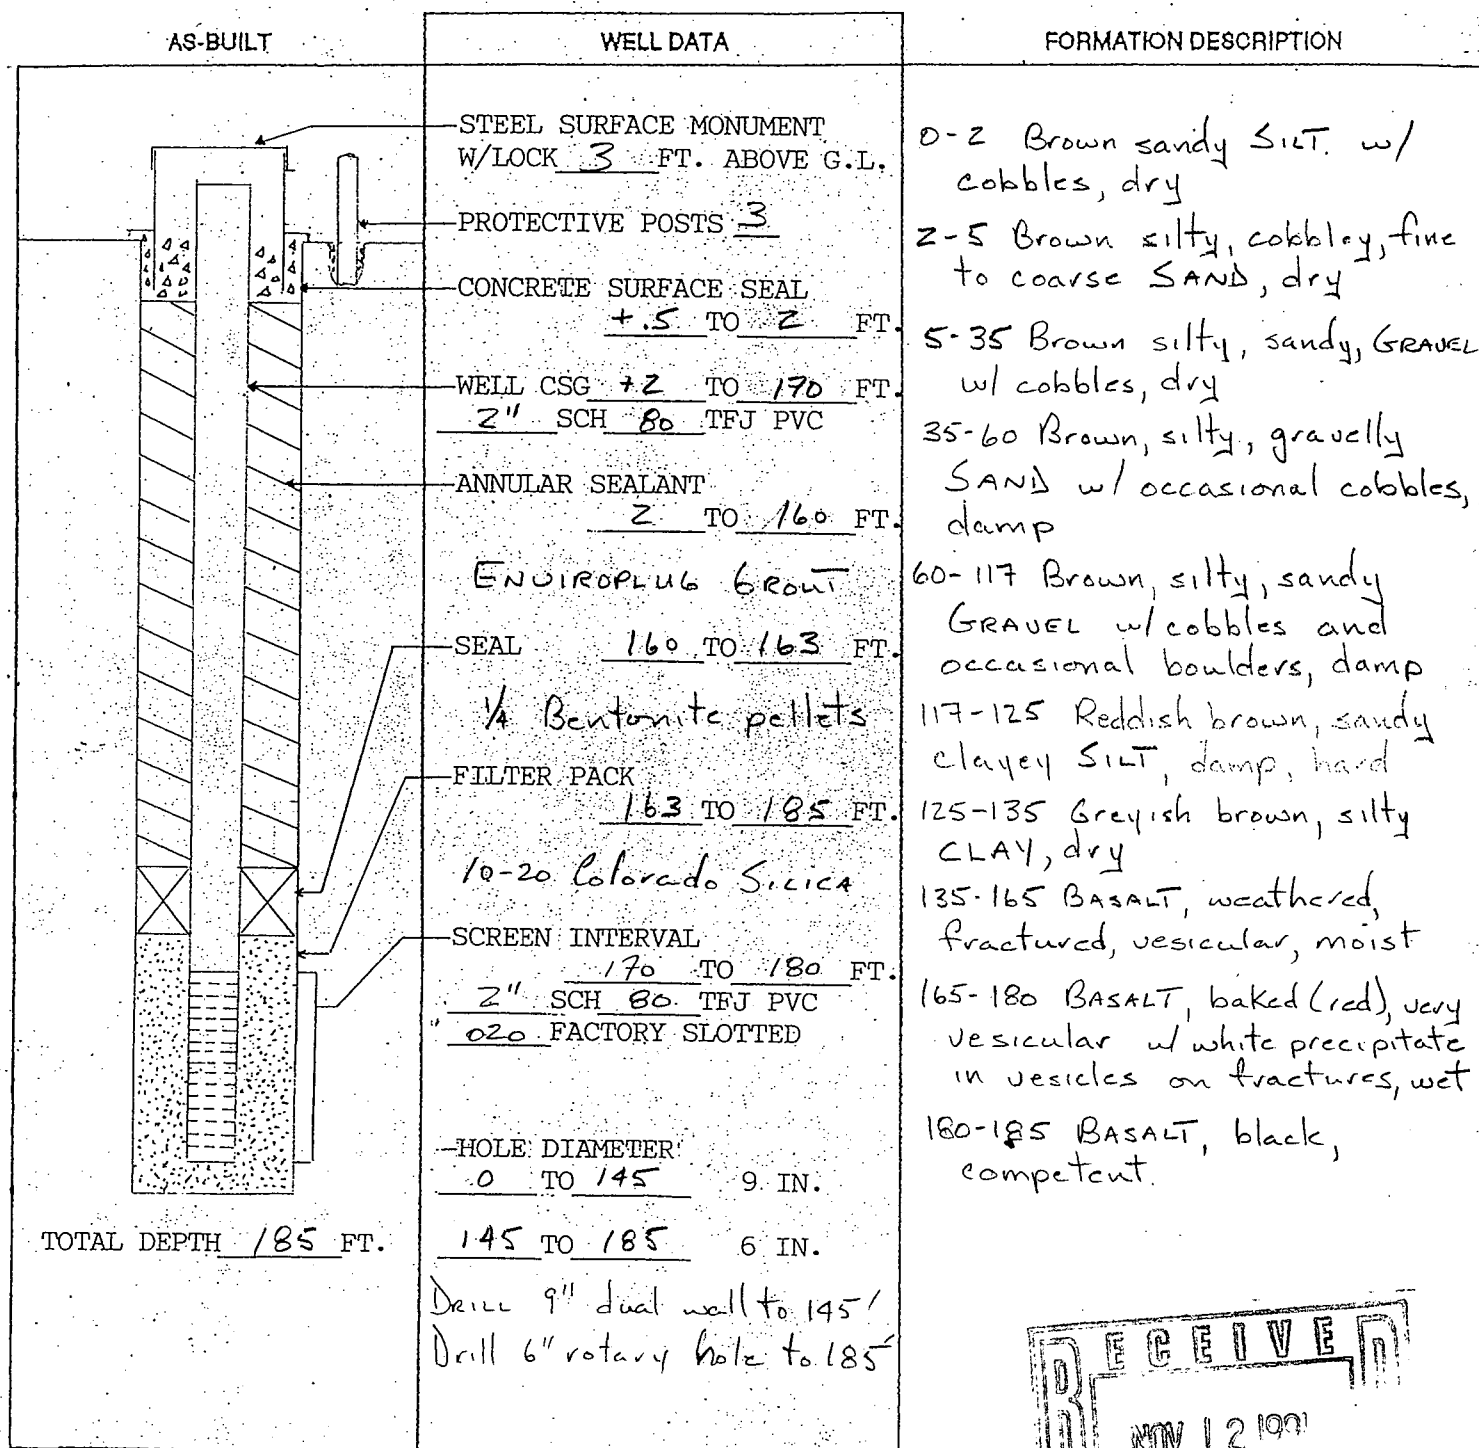 AS-BUILT
WELL DATA
FORMATION DESCRIPTION
STEEL SURFACE MONUMENT
W/LOCK 3 FT. ABOVE G.L.
PROTECTIVE POSTS 3
CONCRETE SURFACE SEAL
+.5 TO 2 FT.
WELL CSG +2 TO 170 FT.
2" SCH 80 TFJ PVC
ANNULAR SEALANT
2 TO 160 FT.
ENVIROPLUG GROUT
SEAL 160 TO 163 FT.
1/4 Bentonite pellets
FILTER PACK
163 TO 185 FT.
10-20 Colorado SILICA
SCREEN INTERVAL
170 TO 180 FT.
2" SCH 80 TFJ PVC
020 FACTORY SLOTTED
HOLE DIAMETER
0 TO 145 9 IN.
145 TO 185 6 IN.
DRILL 9" dual wall to 145'
Drill 6" rotary hole to 185'
TOTAL DEPTH 185 FT.
0-2 Brown sandy SILT. w/
cobbles, dry
2-5 Brown silty, cobbley, fine
to coarse SAND, dry
5-35 Brown silty, sandy, GRAVEL
w/ cobbles, dry
35-60 Brown, silty, gravelly
SAND w/ occasional cobbles,
damp
60-117 Brown, silty, sandy
GRAVEL w/ cobbles and
occasional boulders, damp
117-125 Reddish brown, sandy
clayey SILT, damp, hard
125-135 Greyish brown, silty
CLAY, dry
135-165 BASALT, weathered,
fractured, vesicular, moist
165-180 BASALT, baked (red), very
vesicular w/ white precipitate
in vesicles on fractures, wet
180-185 BASALT, black,
competent.
RECEIVED
NOV 12 1991